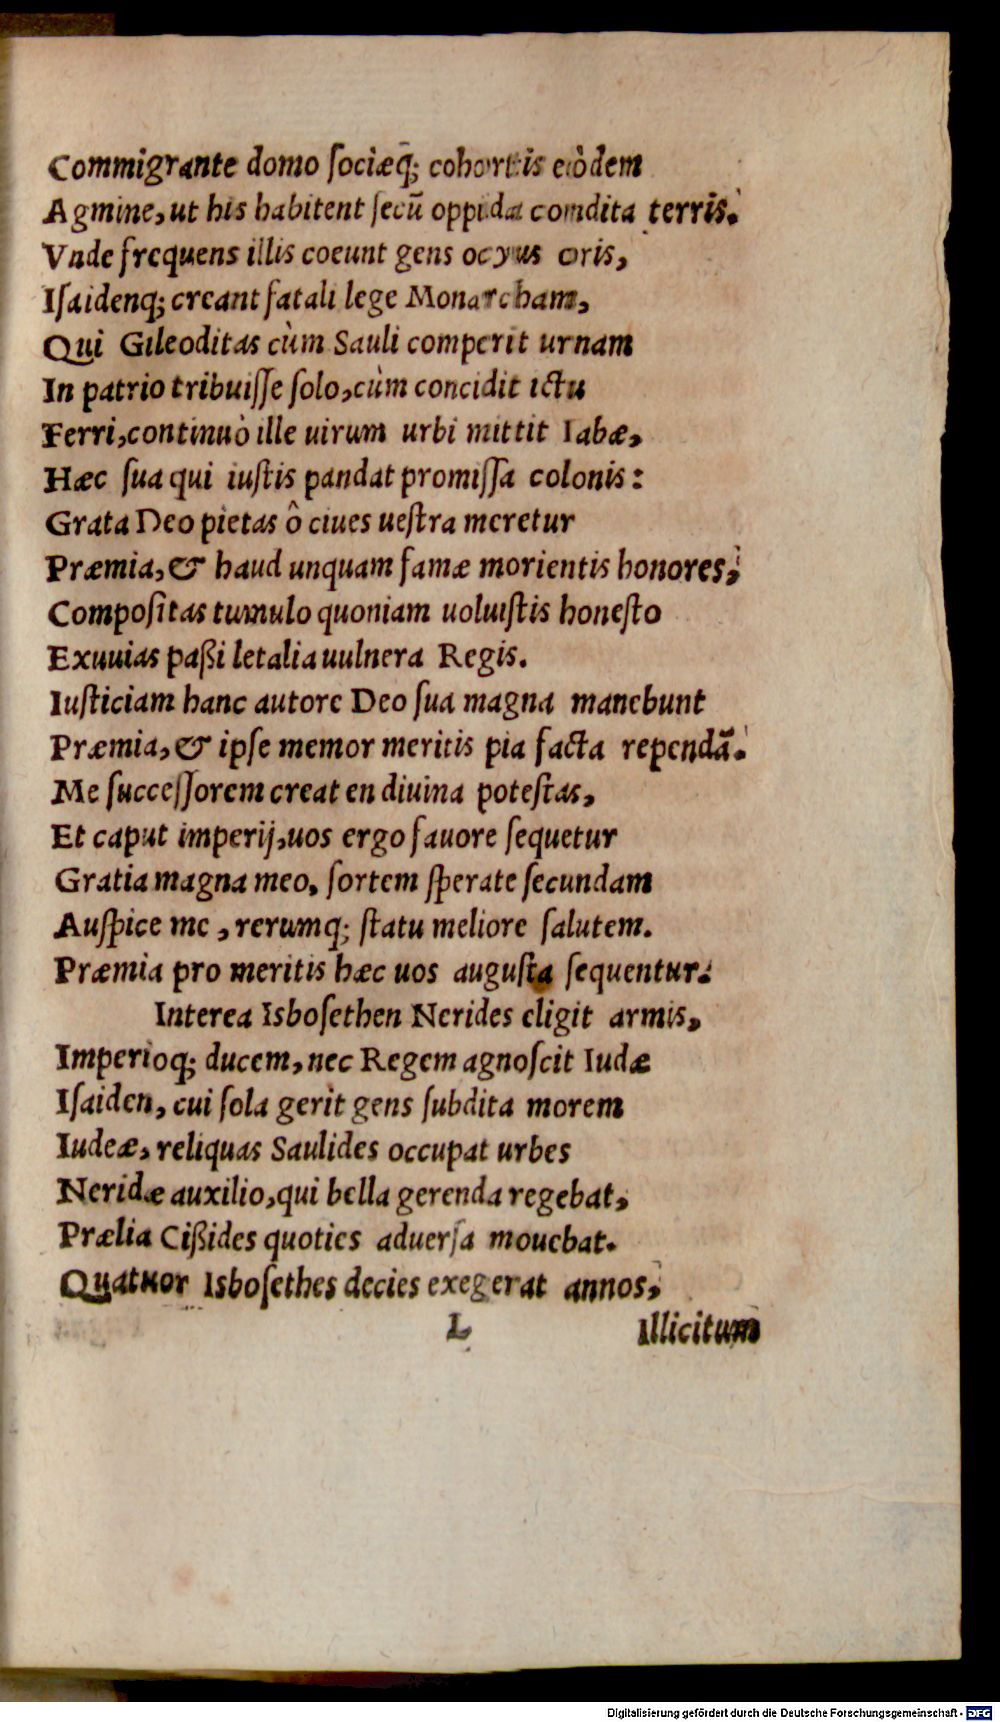 Commigrante domo sociæq̃; cohortis eòdem
Agmine, ut his habitent secũ oppida condita terris.
Vnde frequens illis coeunt gens ocyus oris,
Isaidenq; creant fatali lege Monarcham,
Qui Gileoditas cùm Sauli comperit urnam
In patrio tribuisse solo, cùm concidit ictu
Ferri, continuò ille uirum urbi mittit Iabæ,
Hæc sua qui iustis pandat promissa colonis:
Grata Deo pietas ô ciues uestra meretur
Præmia, & haud unquam famæ morientis honores,
Compositas tumulo quoniam uoluistis honesto
Exuuias paßi letalia uulnera Regis.
Iusticiam hanc autore Deo sua magna manebunt
Præmia, & ipse memor meritis pia facta rependã.
Me successorem creat en diuina potestas,
Et caput imperij, uos ergo fauore sequetur
Gratia magna meo, sortem sperate secundam
Auspice me, rerumq; statu meliore salutem.
Præmia pro meritis hæc uos augusta sequentur.
Interea Isbosethen Nerides eligit armis,
Imperioq; ducem, nec Regem agnoscit Iudæ
Isaiden, cui sola gerit gens subdita morem
Iudeæ, reliquas Saulides occupat urbes
Neridæ auxilio, qui bella gerenda regebat,
Prælia Cißides quoties aduersa mouebat.
Quatuor Isbosethes decies exegerat annos,
L Illicitum
Digitalisierung gefördert durch die Deutsche Forschungsgemeinschaft - DFG